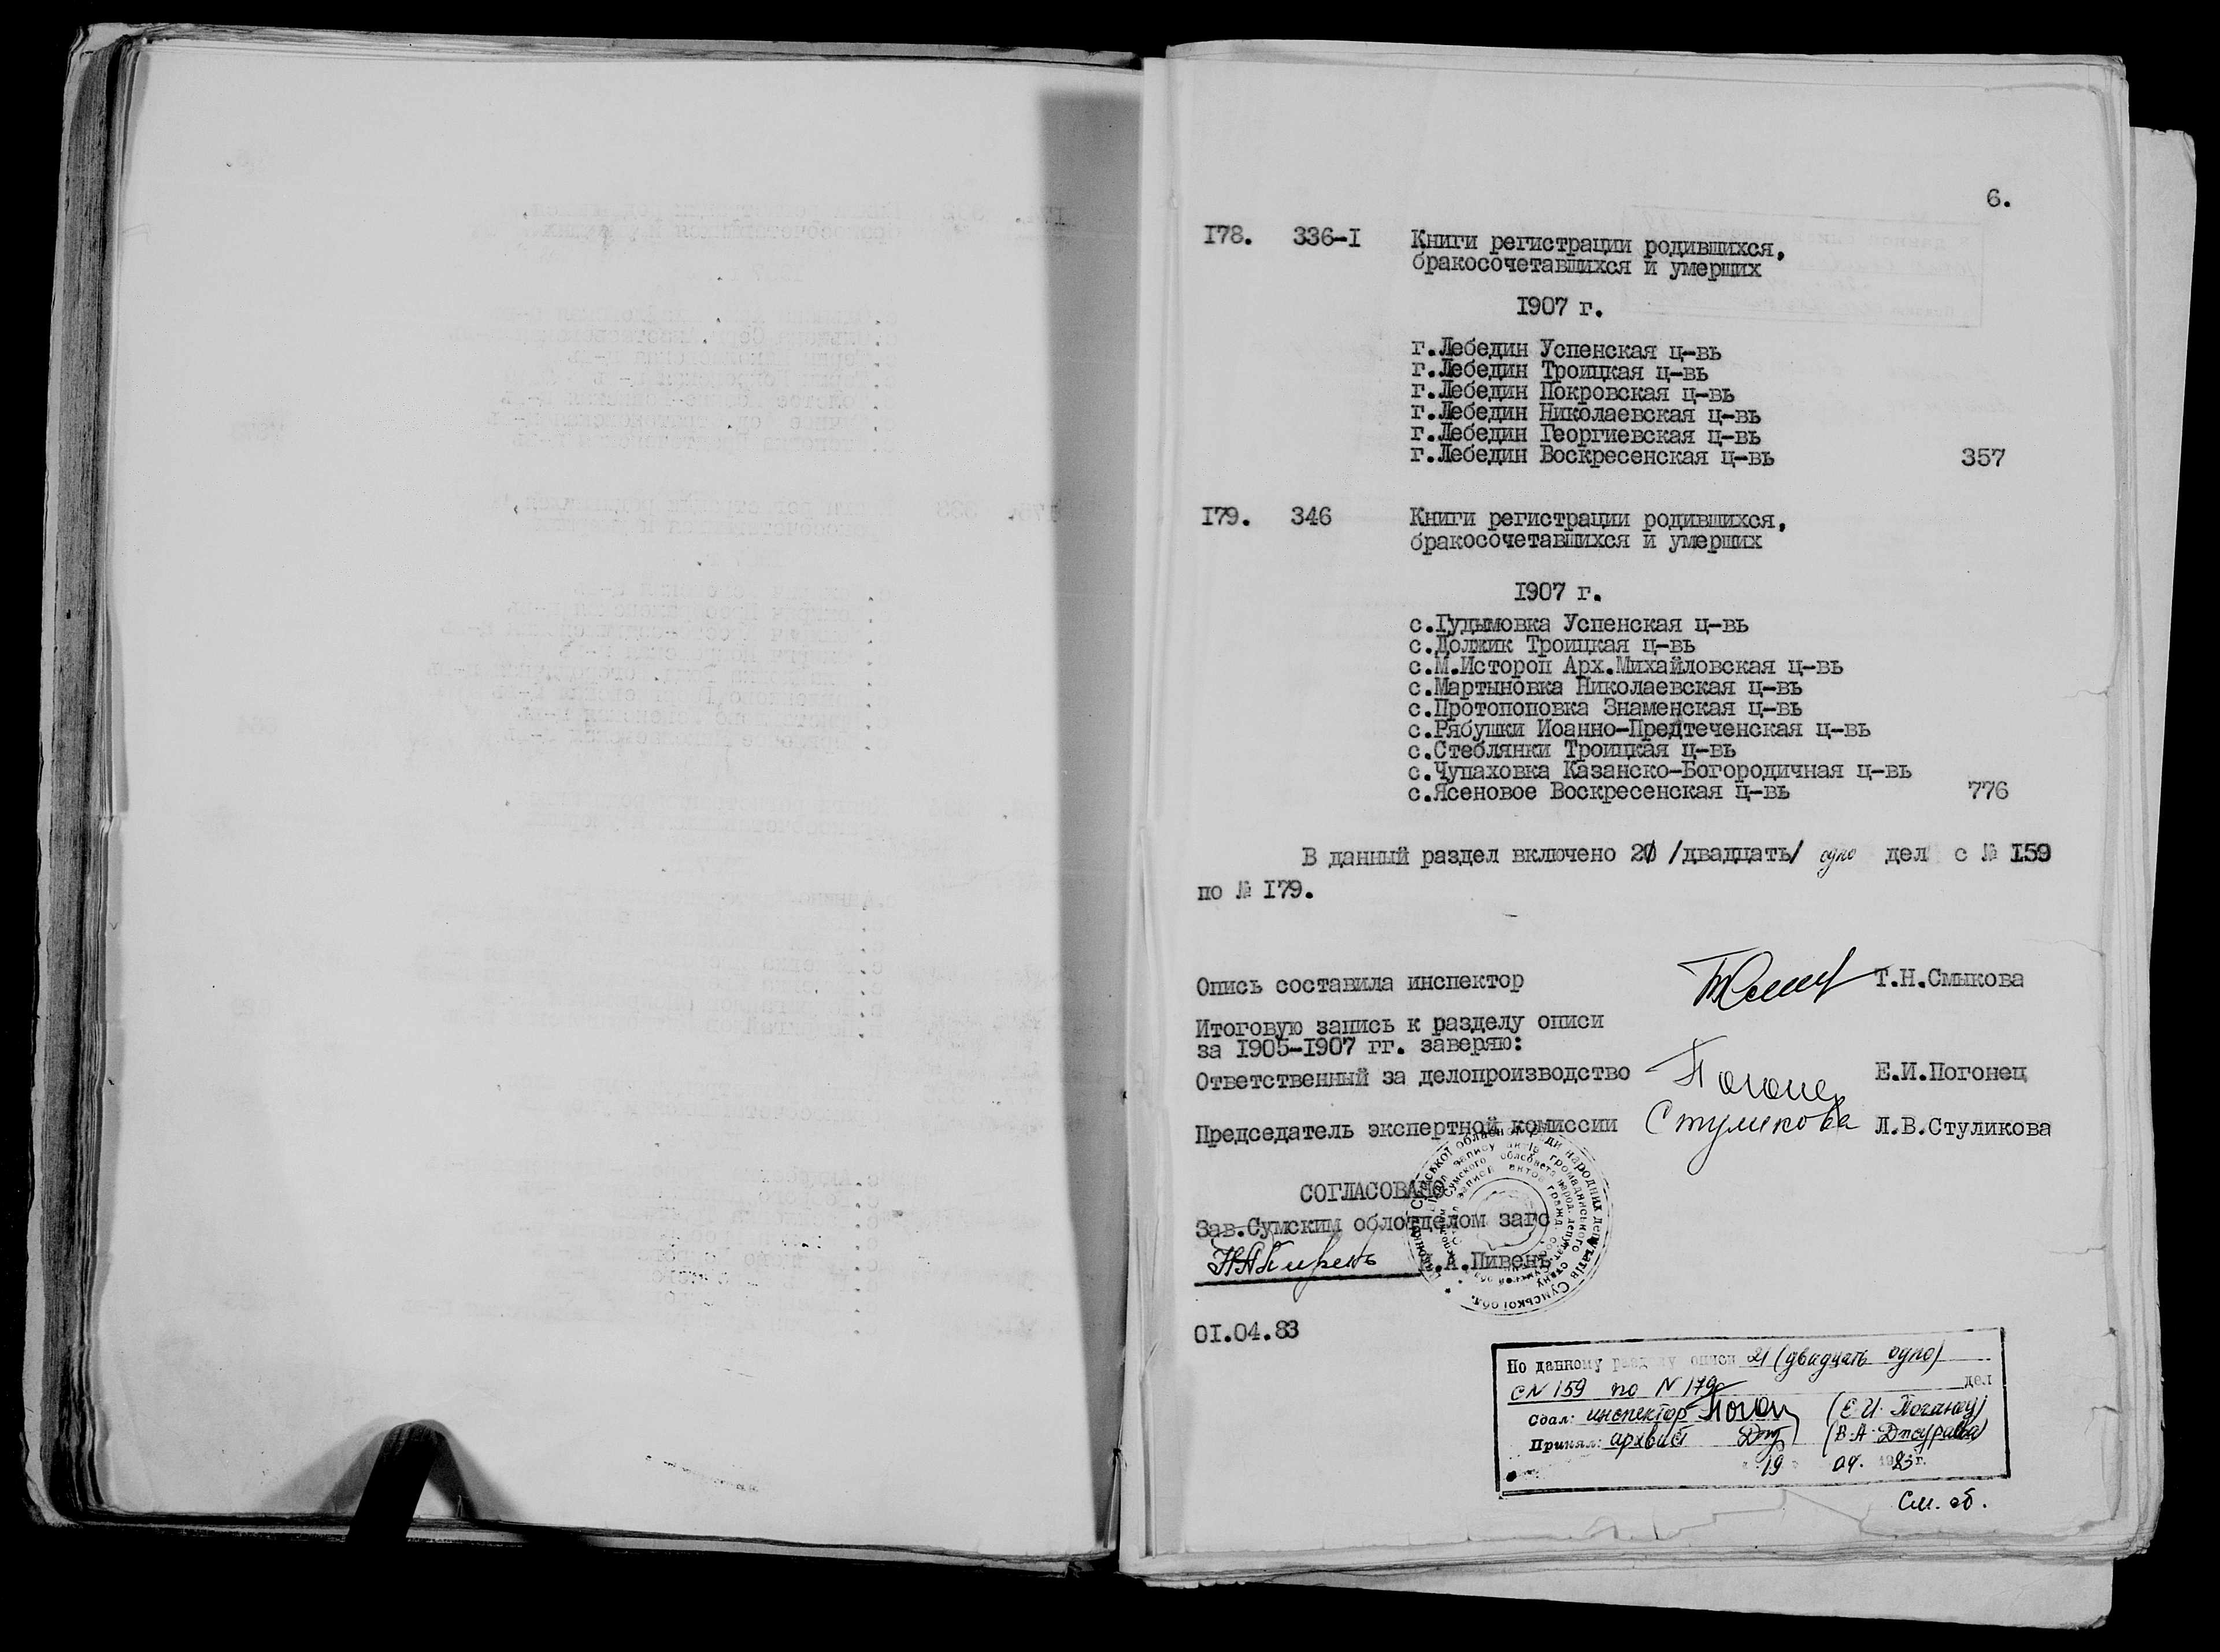 6.
I78. 336-I Книги регистрации родившихся,
бракосочетавшихся и умерших
I907 г.
г.Лебедин Успенская ц-вь
г.Лебедин Троицкая ц-вь
г.Лебедин Покровская ц-вь
г.Лебедин Николаевская ц-вь
г.Лебедин Георгиевская ц-вь
г.Лебедин Воскресенская ц-вь 357
I79. 346 Книги регистрации родившихся,
бракосочетавшихся и умерших
I907 г.
с.Гудымовка Успенская ц-вь
с.Должик Троицкая ц-вь
с.М.Истороп Арх.Михайловская ц-вь
с.Мартыновка Николаевская ц-вь
с.Протопоповка Знаменская ц-вь
с.Рябушки Иоанно-Предтеченская ц-вь
с.Стеблянки Троицкая ц-вь
с.Чупаховка Казанско-Богородичная ц-вь
с.Ясеновое Воскресенская ц-вь 776
В данный раздел включено 21 /двадцать/ одно дел с № I59
по № I79.
Опись составила инспектор Т.Н.Смыкова
Итоговую запись к разделу описи
за I905-I907 гг. заверяю:
Ответственный за делопроизводство Погонец Е.И.Погонец
Председатель экспертной комиссии Стуликова Л.В.Стуликова
СОГЛАСОВАНО
Зав.Сумским облотделом загс
Н.А.Пивень
0I.04.83
По данному разделу описи 21 (двадцать одно)
с N 159 по N 179 дел
Сдал: инспектор (Е.И. Погонец)
Принял: архивист (В.А.
19 04. 1983 г.
См. об.